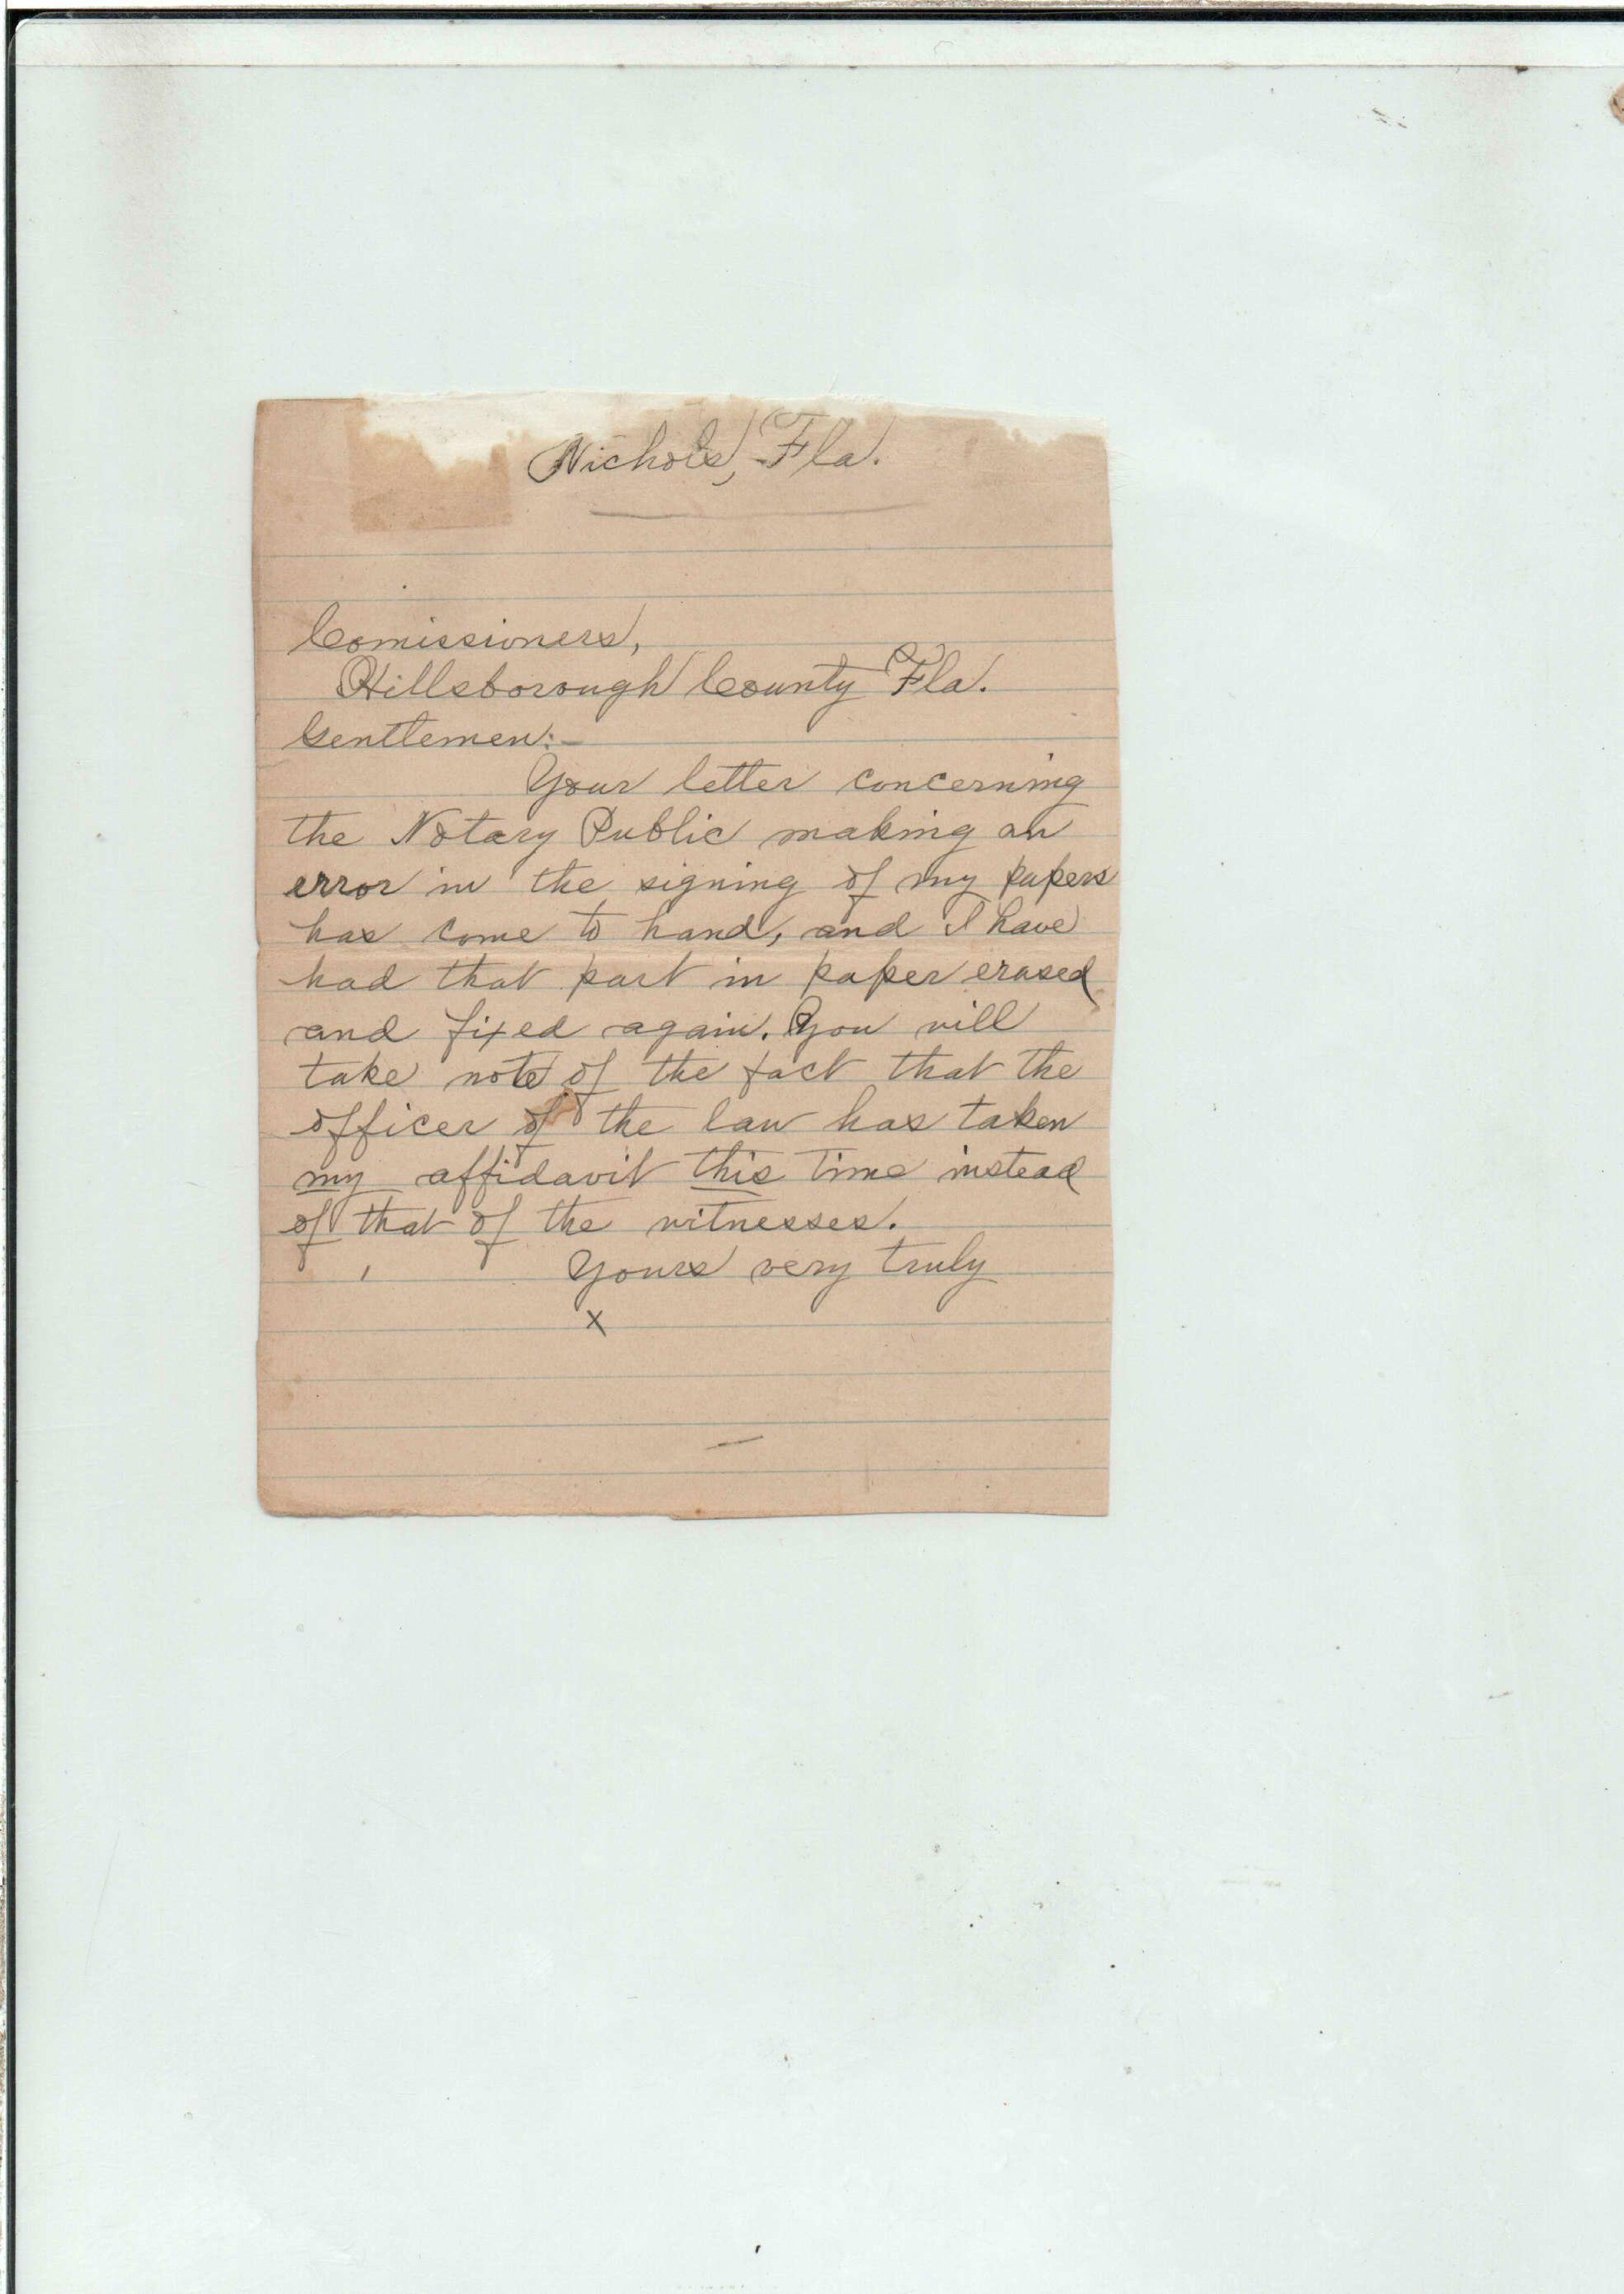 Nichols, Fla.
Comissioners,
Hillsborough County Fla.
Gentlemen:-
Your letter concerning
the Notary Public making an
error in the signing of my papers
has come to hand, and I have
had that part in paper erased
and fixed again. You will
take note of the fact that the
officer of the law has taken
my affidavit this time instead
of that of the witnesses.
Yours very truly
x